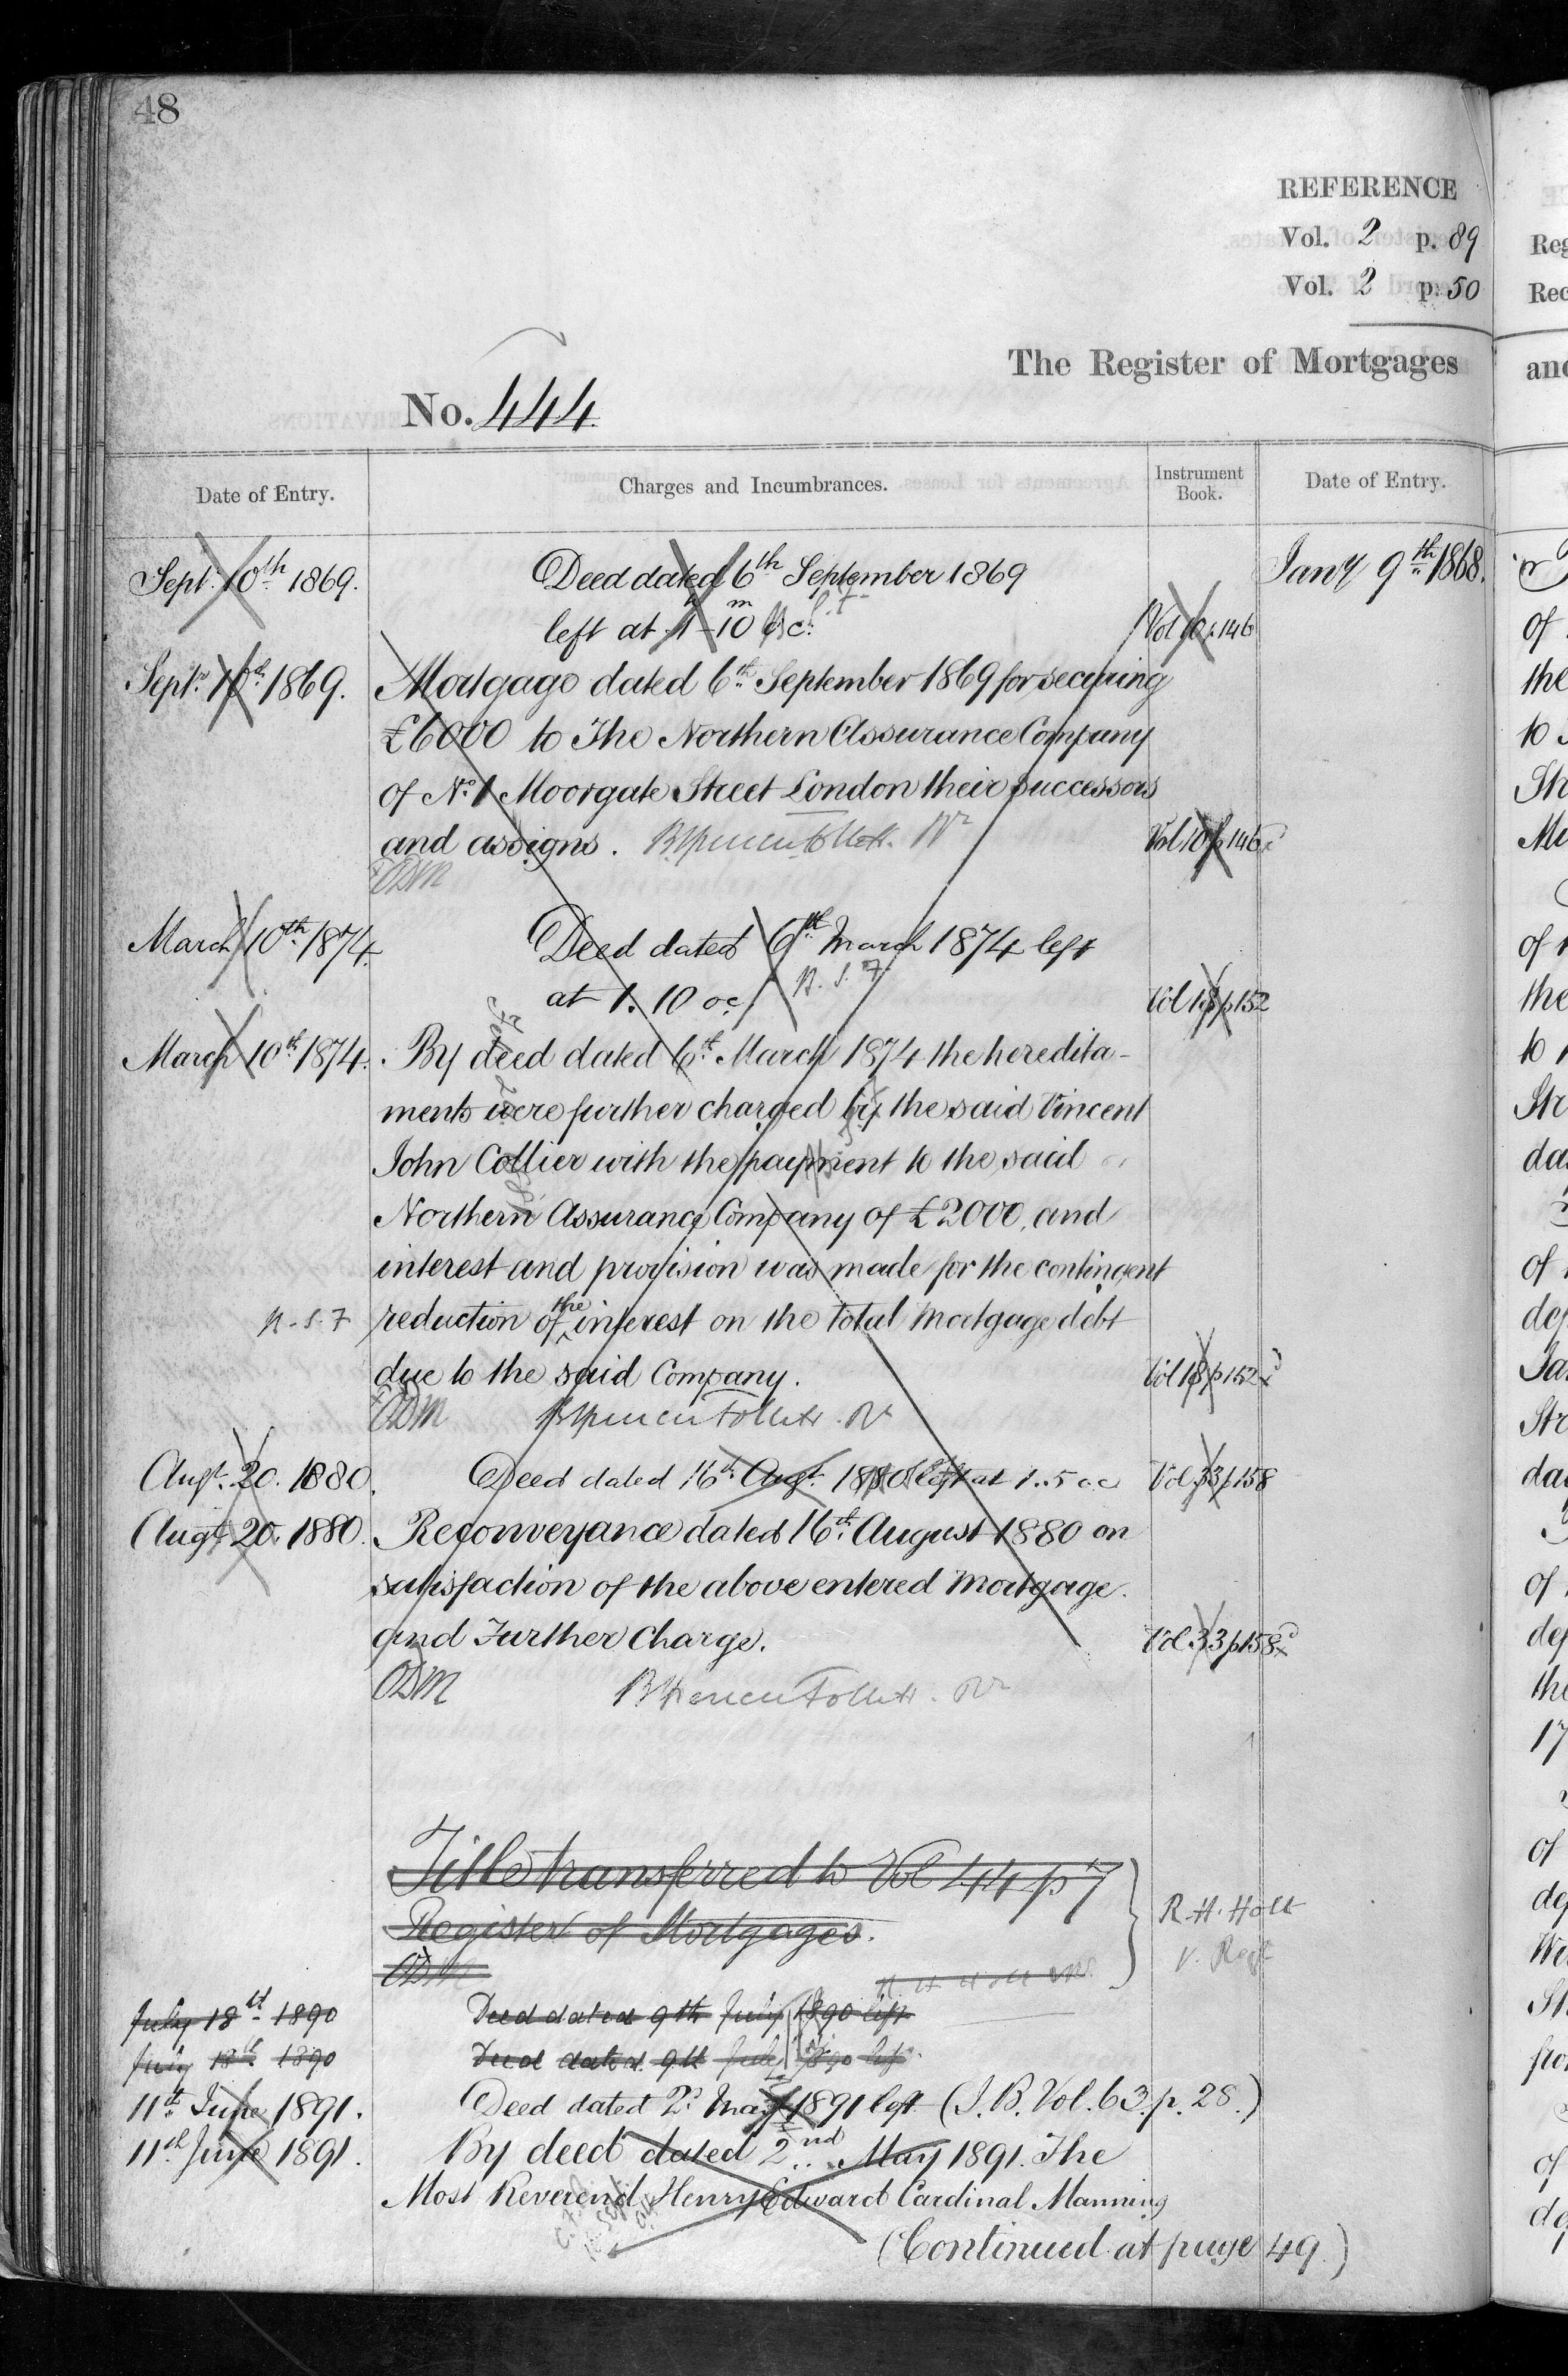 48
REFERENCE
Vol. 2 p. 89
Vol. 2 p. 50
The Register of Mortgages
No. 444
Date of Entry.
Charges and Incumbrances.
Instrument Book.
Date of Entry.
Sept. 10th 1869.
Deed dated 6th September 1869
Jany 9th 1868.
left at 1h-10m oc.
Vol 10 p. 146
Septr. 10th 1869.
Mortgage dated 6th September 1869 for securing
£6000 to The Northern Assurance Company
of No. 1 Moorgate Street London their successors
and assigns.
Vol 10 p 146
ODM
March 10th 1874.
Deed dated 6th March 1874 left
at 1. 10 oc
R. S. F
Vol 18 p 152
March 10th 1874.
By deed dated 6th March 1874 the heredita-
ments were further charged by the said Vincent
John Collier with the payment to the said
Northern Assurance Company of £2000, and
interest and provision was made for the contingent
R. S. F
reduction of the interest on the total Mortgage debt
due to the said Company.
Vol 18 p 152
ODM
Augt. 20. 1880.
Deed dated 16th Augt. 1880 left at 1..5 oc
Vol 33 p 158
Augt. 20. 1880.
Reconveyance dated 16th August 1880 on
satisfaction of the above entered Mortgage
and Further Charge.
Vol 33 p 158
ODM
Title transferred to Vol 44 p 7
Register of Mortgages.
R. H. Holt
July 18th 1890
Deed dated 9th July 1890 left
July 18th 1890
Deed dated 9th July 1890 left
11th June 1891.
Deed dated 2d May 1891 left (I. B. Vol. 63. p. 28.)
11th June 1891.
By deed dated 2nd May 1891. The
Most Reverend Henry Edward Cardinal Manning
(Continued at page 49.)